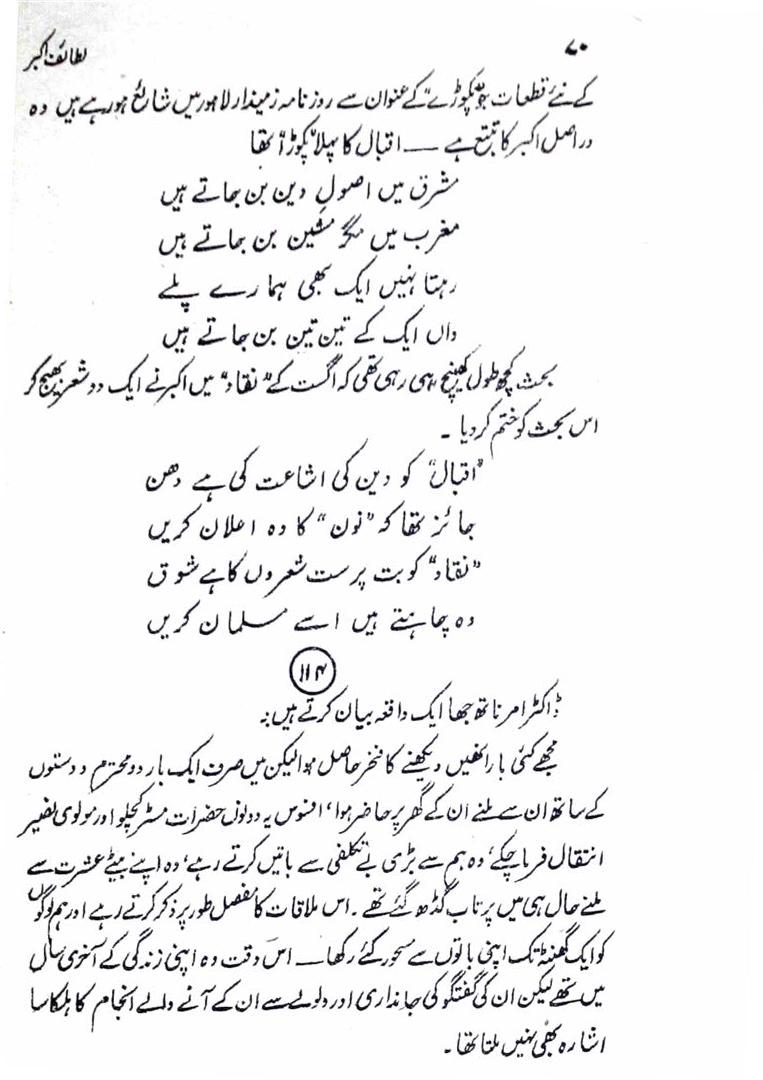 ۷۰
لطائف اکبر
کے نئے قطعات جو "پکوڑے" کے عنوان سے روزنامہ زمیندار لاہور میں شائع ہو رہے ہیں وہ
دراصل اکبر کا تتبع ہے — اقبال کا پہلا "پکوڑا" تھا
مشرق میں اصولِ دین بن جاتے ہیں
مغرب میں مگر مشین بن جاتے ہیں
رہتا نہیں ایک بھی ہمارے پلے
واں ایک کے تین تین بن جاتے ہیں
بحث کچھ طول کھینچ ہی رہی تھی کہ اگست کے "نقاد" میں اکبر نے ایک دو شعر بھیج کر
اس بحث کو ختم کر دیا ۔
"اقبال" کو دین کی اشاعت کی ہے دھن
جائز تھا کہ "نون" کا وہ اعلان کریں
"نقاد" کو بت پرست شعروں کا ہے شوق
وہ چاہتے ہیں اسے مسلمان کریں
۱۱۴
ڈاکٹر امر ناتھ جھا ایک واقعہ بیان کرتے ہیں:۔
مجھے کئی بار انھیں دیکھنے کا فخر حاصل ہوا لیکن میں صرف ایک بار دو محترم دوستوں
کے ساتھ ان سے ملنے ان کے گھر پر حاضر ہوا، افسوس یہ دونوں حضرات مسٹر کچلو اور مولوی نصیر
انتقال فرما چکے، وہ ہم سے بڑی بے تکلفی سے باتیں کرتے رہے، وہ اپنے بیٹے عشرت سے
ملنے حال ہی میں پرتاب گڈھ گئے تھے ۔ اس ملاقات کا مفصل طور پر ذکر کرتے رہے اور ہم لوگوں
کو ایک گھنٹہ تک اپنی باتوں سے مسحور کئے رکھا — اس وقت وہ اپنی زندگی کے آخری سال
میں تھے لیکن ان کی گفتگو کی جانداری اور ولولے سے ان کے آنے والے انجام کا ہلکا سا
اشارہ بھی نہیں ملتا تھا ۔